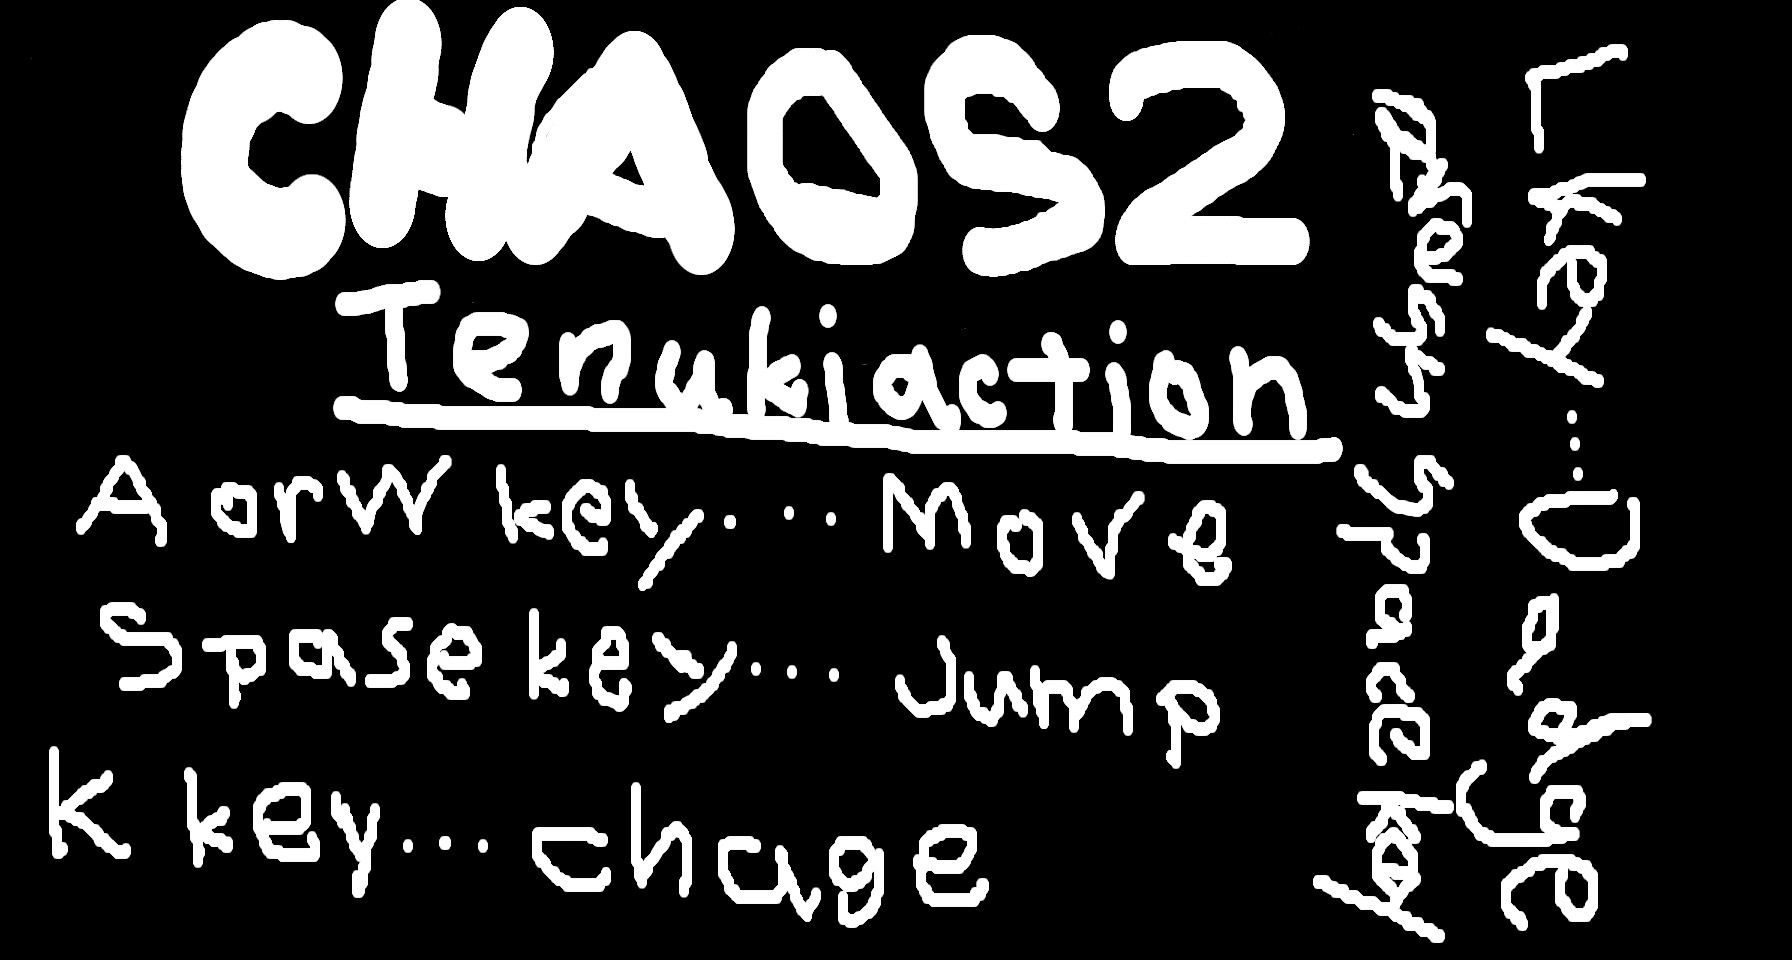 CHAOS2
Tenukiaction
A orW key... Move
Spase key... Jump
K key... chage
L key... Dadge
Push space key